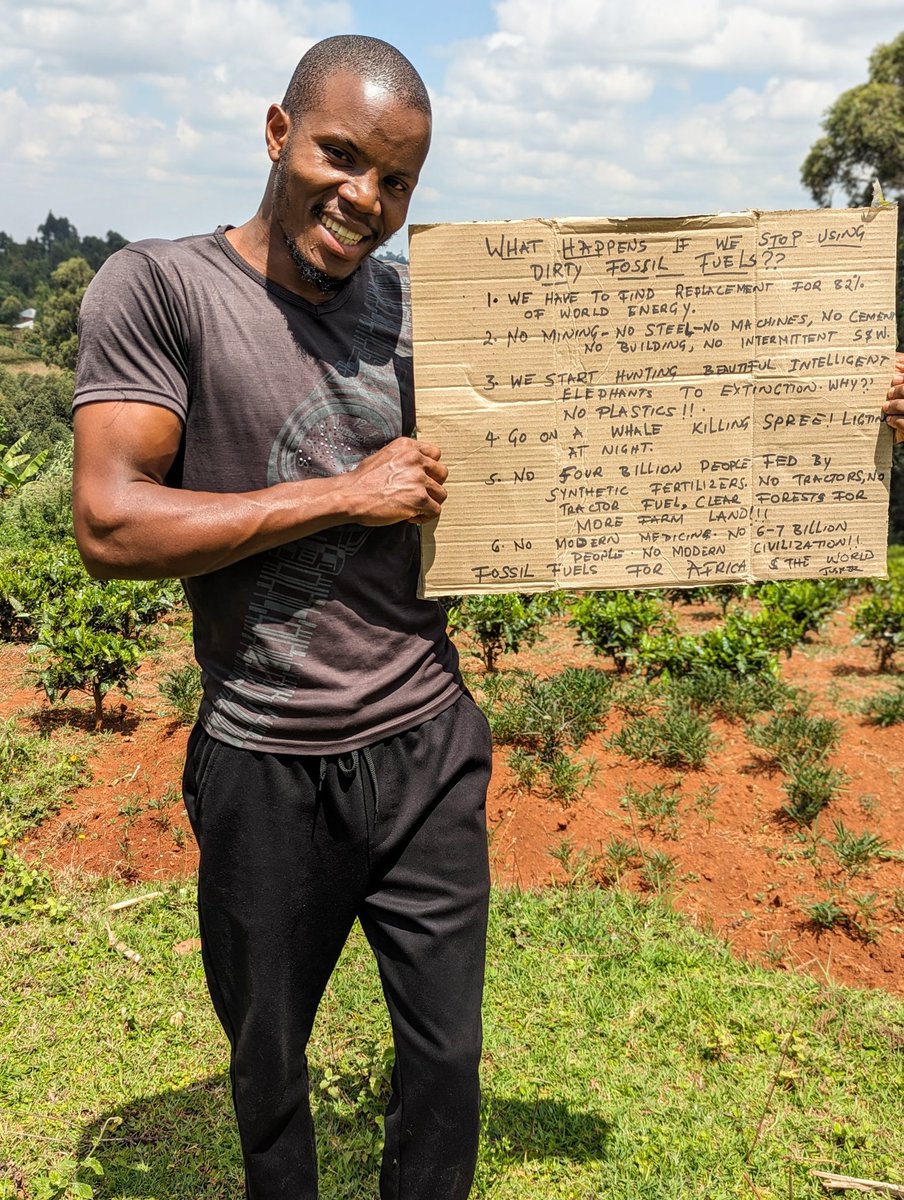 WHAT HAPPENS IF WE STOP USING
DIRTY FOSSIL FUELS??
1. WE HAVE TO FIND REPLACEMENT FOR 82%
OF WORLD ENERGY.
2. NO MINING- NO STEEL-NO MACHINES, NO CEMENT
NO BUILDING, NO INTERMITTENT S&W.
3. WE START HUNTING BEAUTIFUL INTELLIGENT
ELEPHANTS TO EXTINCTION. WHY??
NO PLASTICS!!.
4 GO ON A WHALE KILLING SPREE! LIGTIN
AT NIGHT.
5. NO FOUR BILLION PEOPLE FED BY
SYNTHETIC FERTILIZERS. NO TRACTORS, NO
TRACTOR FUEL, CLEAR FORESTS FOR
MORE FARM LAND!!!
6. NO MODERN MEDICING. NO 6-7 BILLION
PEOPLE. NO MODERN CIVILIZATION!!
FOSSIL FUELS FOR AFRICA & THE WORLD
JUSPER